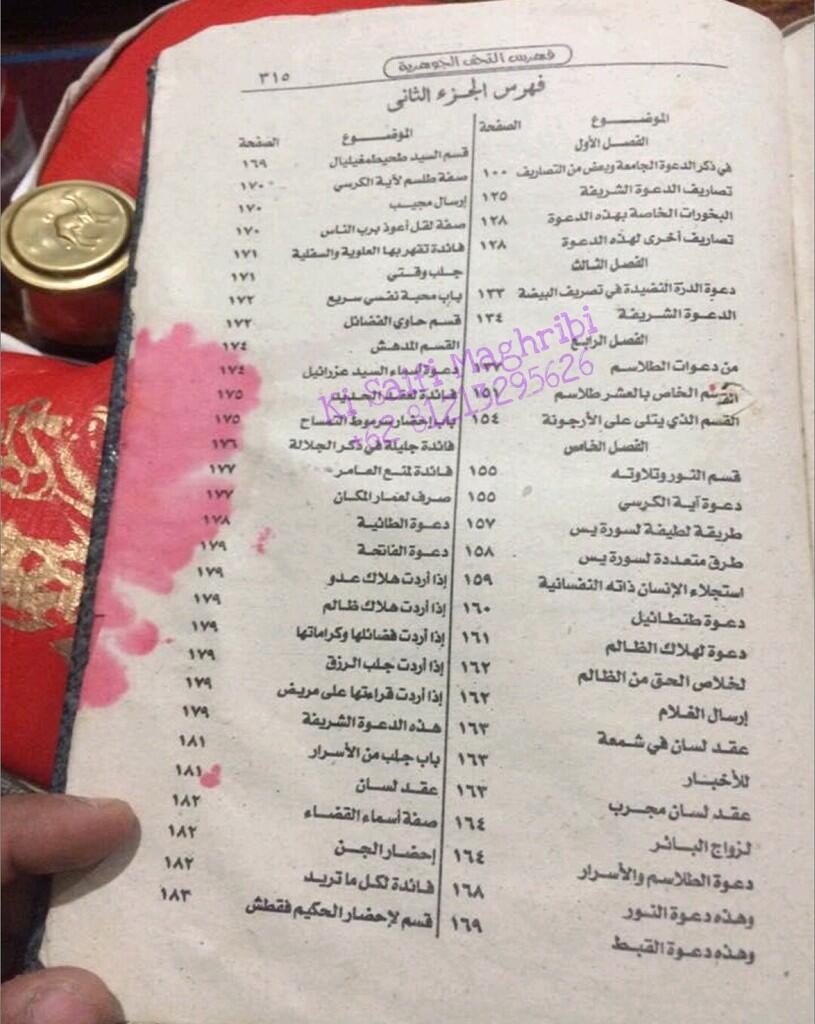 فهرس التحف الجوهرية
٣١٥
فهرس الجزء الثانى
الموضوع الصفحة
الفصل الأول
في ذكر الدعوة الجامعة وبعض من التصاريف ١٠٠
تصاريف الدعوة الشريفة ١٢٥
البخورات الخاصة بهذه الدعوة ١٢٨
تصاريف أخرى لهذه الدعوة ١٢٨
الفصل الثالث
دعوة الدرة النضيدة في تصريف البيضة ١٣٣
الدعوة الشريفة ١٣٤
الفصل الرابع
من دعوات الطلاسم ١٣٧
القسم الخاص بالعشر طلاسم ١٥١
القسم الذي يتلى على الأرجونة ١٥٤
الفصل الخامس
قسم النور وتلاوته ١٥٥
دعوة آية الكرسي ١٥٥
طريقة لطيفة لسورة يس ١٥٧
طرق متعددة لسورة يس ١٥٨
استجلاء الإنسان ذاته النفسانية ١٥٩
دعوة طنطائيل ١٦٠
دعوة لهلاك الظالم ١٦١
لخلاص الحق من الظالم ١٦٢
إرسال الغلام ١٦٢
عقد لسان في شمعة ١٦٣
للأخبار ١٦٣
عقد لسان مجرب ١٦٣
لزواج البائر ١٦٤
دعوة الطلاسم والأسرار ١٦٤
وهذه دعوة النور ١٦٨
وهذه دعوة القبط ١٦٩
الموضوع الصفحة
قسم السيد طحيطمغيليال ١٦٩
صفة طلسم لآية الكرسي ١٧٠
إرسال مجيب ١٧٠
صفة لقل أعوذ برب الناس ١٧٠
فائدة تقهر بها العلوية والسفلية ١٧١
جلب وقتي ١٧١
باب محبة نفسي سريع ١٧٢
قسم حاوى الفضائل ١٧٢
القسم المدهش ١٧٤
دعوة أسماء السيد عزرائيل ١٧٤
فائدة لعقد الحديد ١٧٥
باب إحضار سرموط التمساح ١٧٥
فائدة جليلة في ذكر الجلالة ١٧٦
فائدة لمنع العامر ١٧٧
صرف لعمار المكان ١٧٧
دعوة الطائية ١٧٨
دعوة الفاتحة ١٧٩
إذا أردت هلاك عدو ١٧٩
إذا أردت هلاك ظالم ١٧٩
إذا أردت فضائلها وكراماتها ١٧٩
إذا أردت جلب الرزق ١٧٩
إذا أردت قراءتها على مريض ١٧٩
هذه الدعوة الشريفة ١٧٩
باب جلب من الأسرار ١٨١
عقد لسان ١٨١
صفة أسماء القضاء ١٨٢
إحضار الجن ١٨٢
فائدة لكل ما تريد ١٨٢
قسم لإحضار الحكيم فقطش ١٨٣
Ki Saifi Maghribi
+62 81213295626